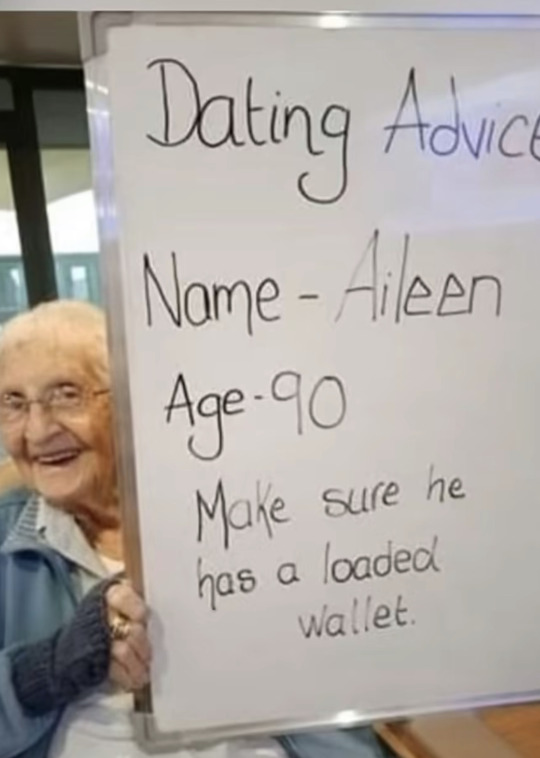 Dating Advice
Name - Aileen
Age - 90
Make sure he
has a loaded
wallet.